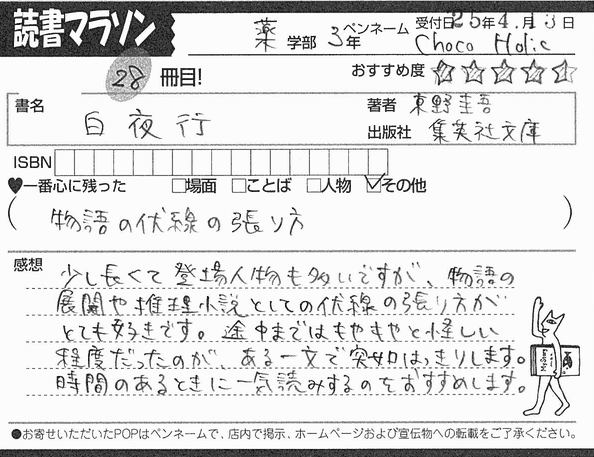 読書マラソン
薬 学部 3年 ペンネーム Choco Holic 受付日 25年4月13日
28 冊目!
おすすめ度 ☆☆☆☆☆
書名 白夜行
著者 東野圭吾
出版社 集英社文庫
ISBN
♥一番心に残った □場面 □ことば □人物 ☑その他
(物語の伏線の張り方)
感想
少し長くて登場人物も多いですが、物語の
展開や推理小説としての伏線の張り方が
とても好きです。途中まではもやもやと怪しい
程度だったのが、ある一文で突如はっきりします。
時間のあるときに一気読みするのをおすすめします。
●お寄せいただいたPOPはペンネームで、店内で掲示、ホームページおよび宣伝物への転載をご了承ください。